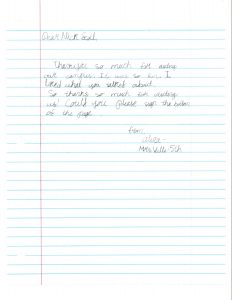 Dear Nick
Thank you so much for
our campus. It was so fun. I
loved what you talked about.
So thanks so much for visiting
us! Could you please sign the bottom
of the page.
from,
Mrs. 5th